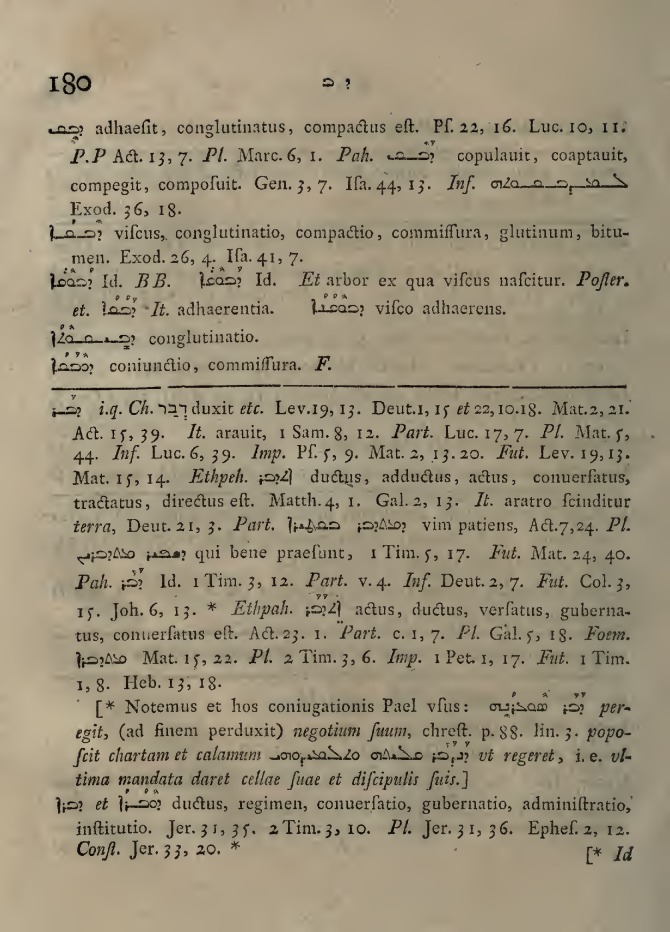 180 ܕ ܒ
ܕܒܩ adhaeſit, conglutinatus, compactus eſt. Pſ. 22, 16. Luc. 10, 11.
P.P Act. 13, 7. Pl. Marc. 6, 1. Pah. ܕܒܩ copulauit, coaptauit,
compegit, compoſuit. Gen. 3, 7. Iſa. 44, 13. Inf. ܠܡܕܒܩܘܬܗ
Exod. 36, 18.
ܕܒܩܐ viſcus, conglutinatio, compactio, commiſſura, glutinum, bitu-
men. Exod. 26, 4. Iſa. 41, 7.
Id. BB. Id. Et arbor ex qua viſcus naſcitur. Poſter.
et. It. adhaerentia. viſco adhaerens.
ܕܒܝܩܘܬܐ conglutinatio.
coniunctio, commiſſura. F.
ܕܒܪ i.q. Ch. דְּבַר duxit etc. Lev. 19, 13. Deut. 1, 15 et 22, 10.18. Mat. 2, 21.
Act. 15, 39. It. arauit, 1 Sam. 8, 12. Part. Luc. 17, 7. Pl. Mat. 5,
44. Inf. Luc. 6, 39. Imp. Pſ. 5, 9. Mat. 2, 13. 20. Fut. Lev. 19, 13.
Mat. 15, 14. Ethpeh. ܐܬܕܒܪ ductus, adductus, actus, conuerſatus,
tractatus, directus eſt. Matth. 4, 1. Gal. 2, 13. It. aratro ſcinditur
terra, Deut. 21, 3. Part. ܡܬܕܒܪ ܒܩܛܝܪܐ vim patiens, Act. 7, 24. Pl.
ܫܦܝܪ ܡܬܕܒܪܝܢ qui bene praeſunt, 1 Tim. 5, 17. Fut. Mat. 24, 40.
Pah. ܕܒܪ Id. 1 Tim. 3, 12. Part. v. 4. Inf. Deut. 2, 7. Fut. Col. 3,
15. Joh. 6, 13. * Ethpah. ܐܬܕܒܪ actus, ductus, verſatus, guberna-
tus, conuerſatus eſt. Act. 23. 1. Part. c. 1, 7. Pl. Gal. 5, 18. Foem.
ܡܬܕܒܪܐ Mat. 15, 22. Pl. 2 Tim. 3, 6. Imp. 1 Pet. 1, 17. Fut. 1 Tim.
1, 8. Heb. 13, 18.
[* Notemus et hos coniugationis Pael vſus: ܕܒܪ ܣܘܥܪܢܗ per-
egit, (ad finem perduxit) negotium ſuum, chreſt. p. 88. lin. 3. popo-
ſcit chartam et calamum ܕܢܕܒܪ ܩܠܝܬܗ ܘܬܠܡܝܕܘܗܝ vt regeret, i. e. vl-
tima mandata daret cellae ſuae et diſcipulis ſuis.]
ܕܒܪܐ et ܕܘܒܪܐ ductus, regimen, conuerſatio, gubernatio, adminiſtratio,
inſtitutio. Jer. 31, 35. 2 Tim. 3, 10. Pl. Jer. 31, 36. Epheſ. 2, 12.
Conſt. Jer. 33, 20. *
[* Id